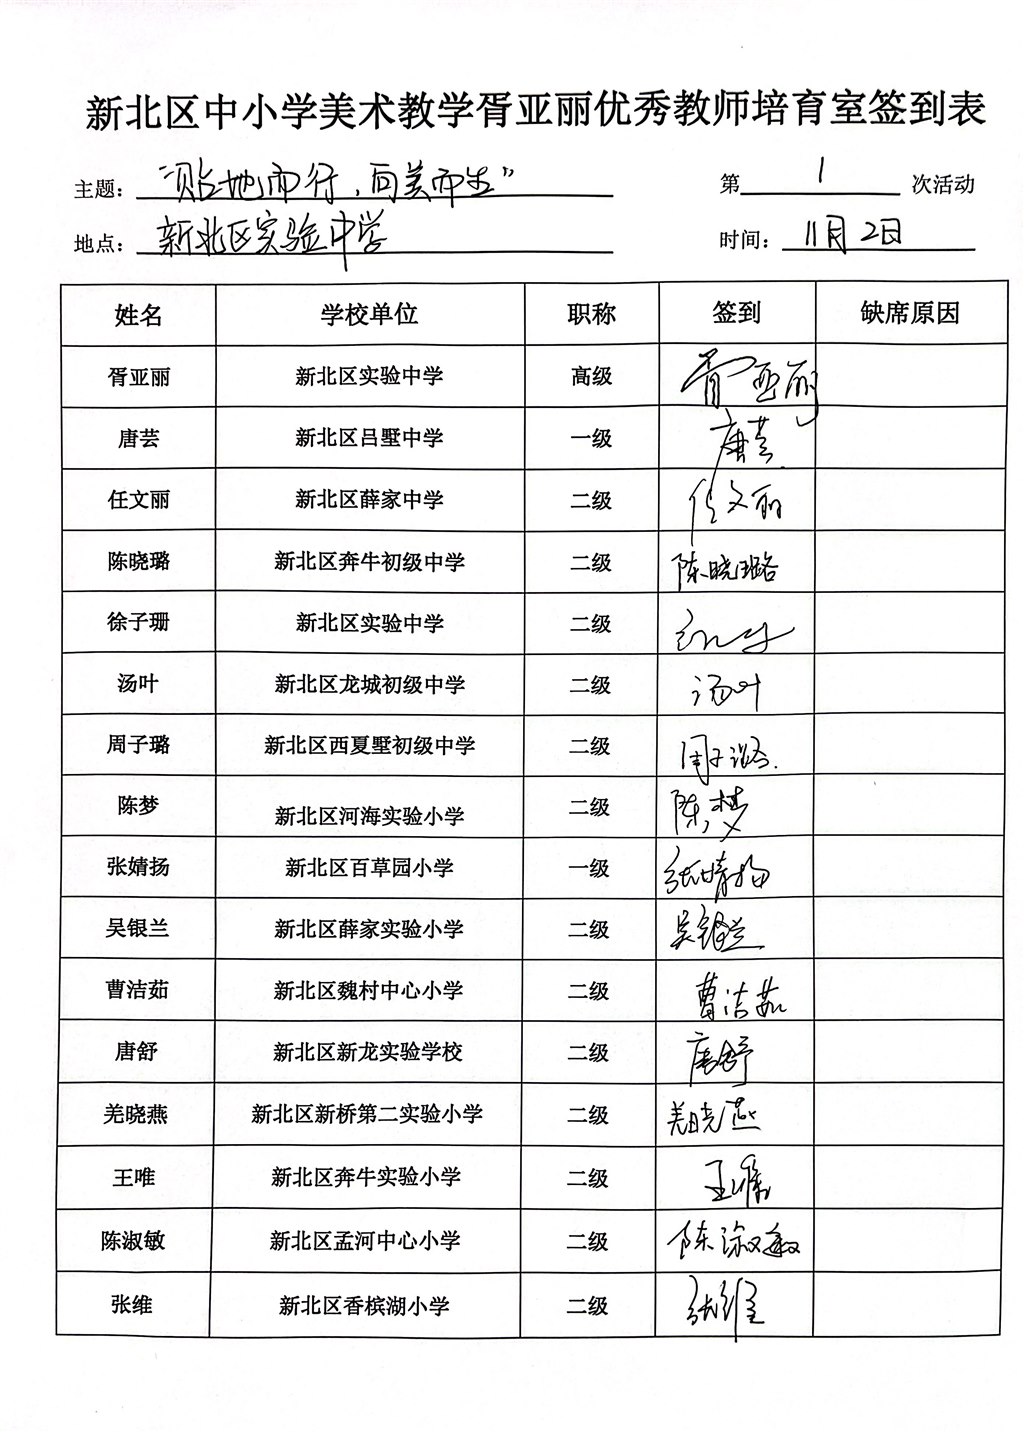 新北区中小学美术教学胥亚丽优秀教师培育室签到表
主题：“贴地而行，向美而生” 第 1 次活动
地点：新北区实验中学 时间：11月2日
姓名 学校单位 职称 签到 缺席原因
胥亚丽 新北区实验中学 高级 胥亚丽
唐芸 新北区吕墅中学 一级 唐芸
任文丽 新北区薛家中学 二级 任文丽
陈晓璐 新北区奔牛初级中学 二级 陈晓璐
徐子珊 新北区实验中学 二级
汤叶 新北区龙城初级中学 二级 汤叶
周子璐 新北区西夏墅初级中学 二级 周子璐
陈梦 新北区河海实验小学 二级 陈梦
张婧扬 新北区百草园小学 一级 张婧扬
吴银兰 新北区薛家实验小学 二级 吴银兰
曹洁茹 新北区魏村中心小学 二级 曹洁茹
唐舒 新北区新龙实验学校 二级 唐舒
羌晓燕 新北区新桥第二实验小学 二级 羌晓燕
王唯 新北区奔牛实验小学 二级 王唯
陈淑敏 新北区孟河中心小学 二级 陈淑敏
张维 新北区香槟湖小学 二级 张维